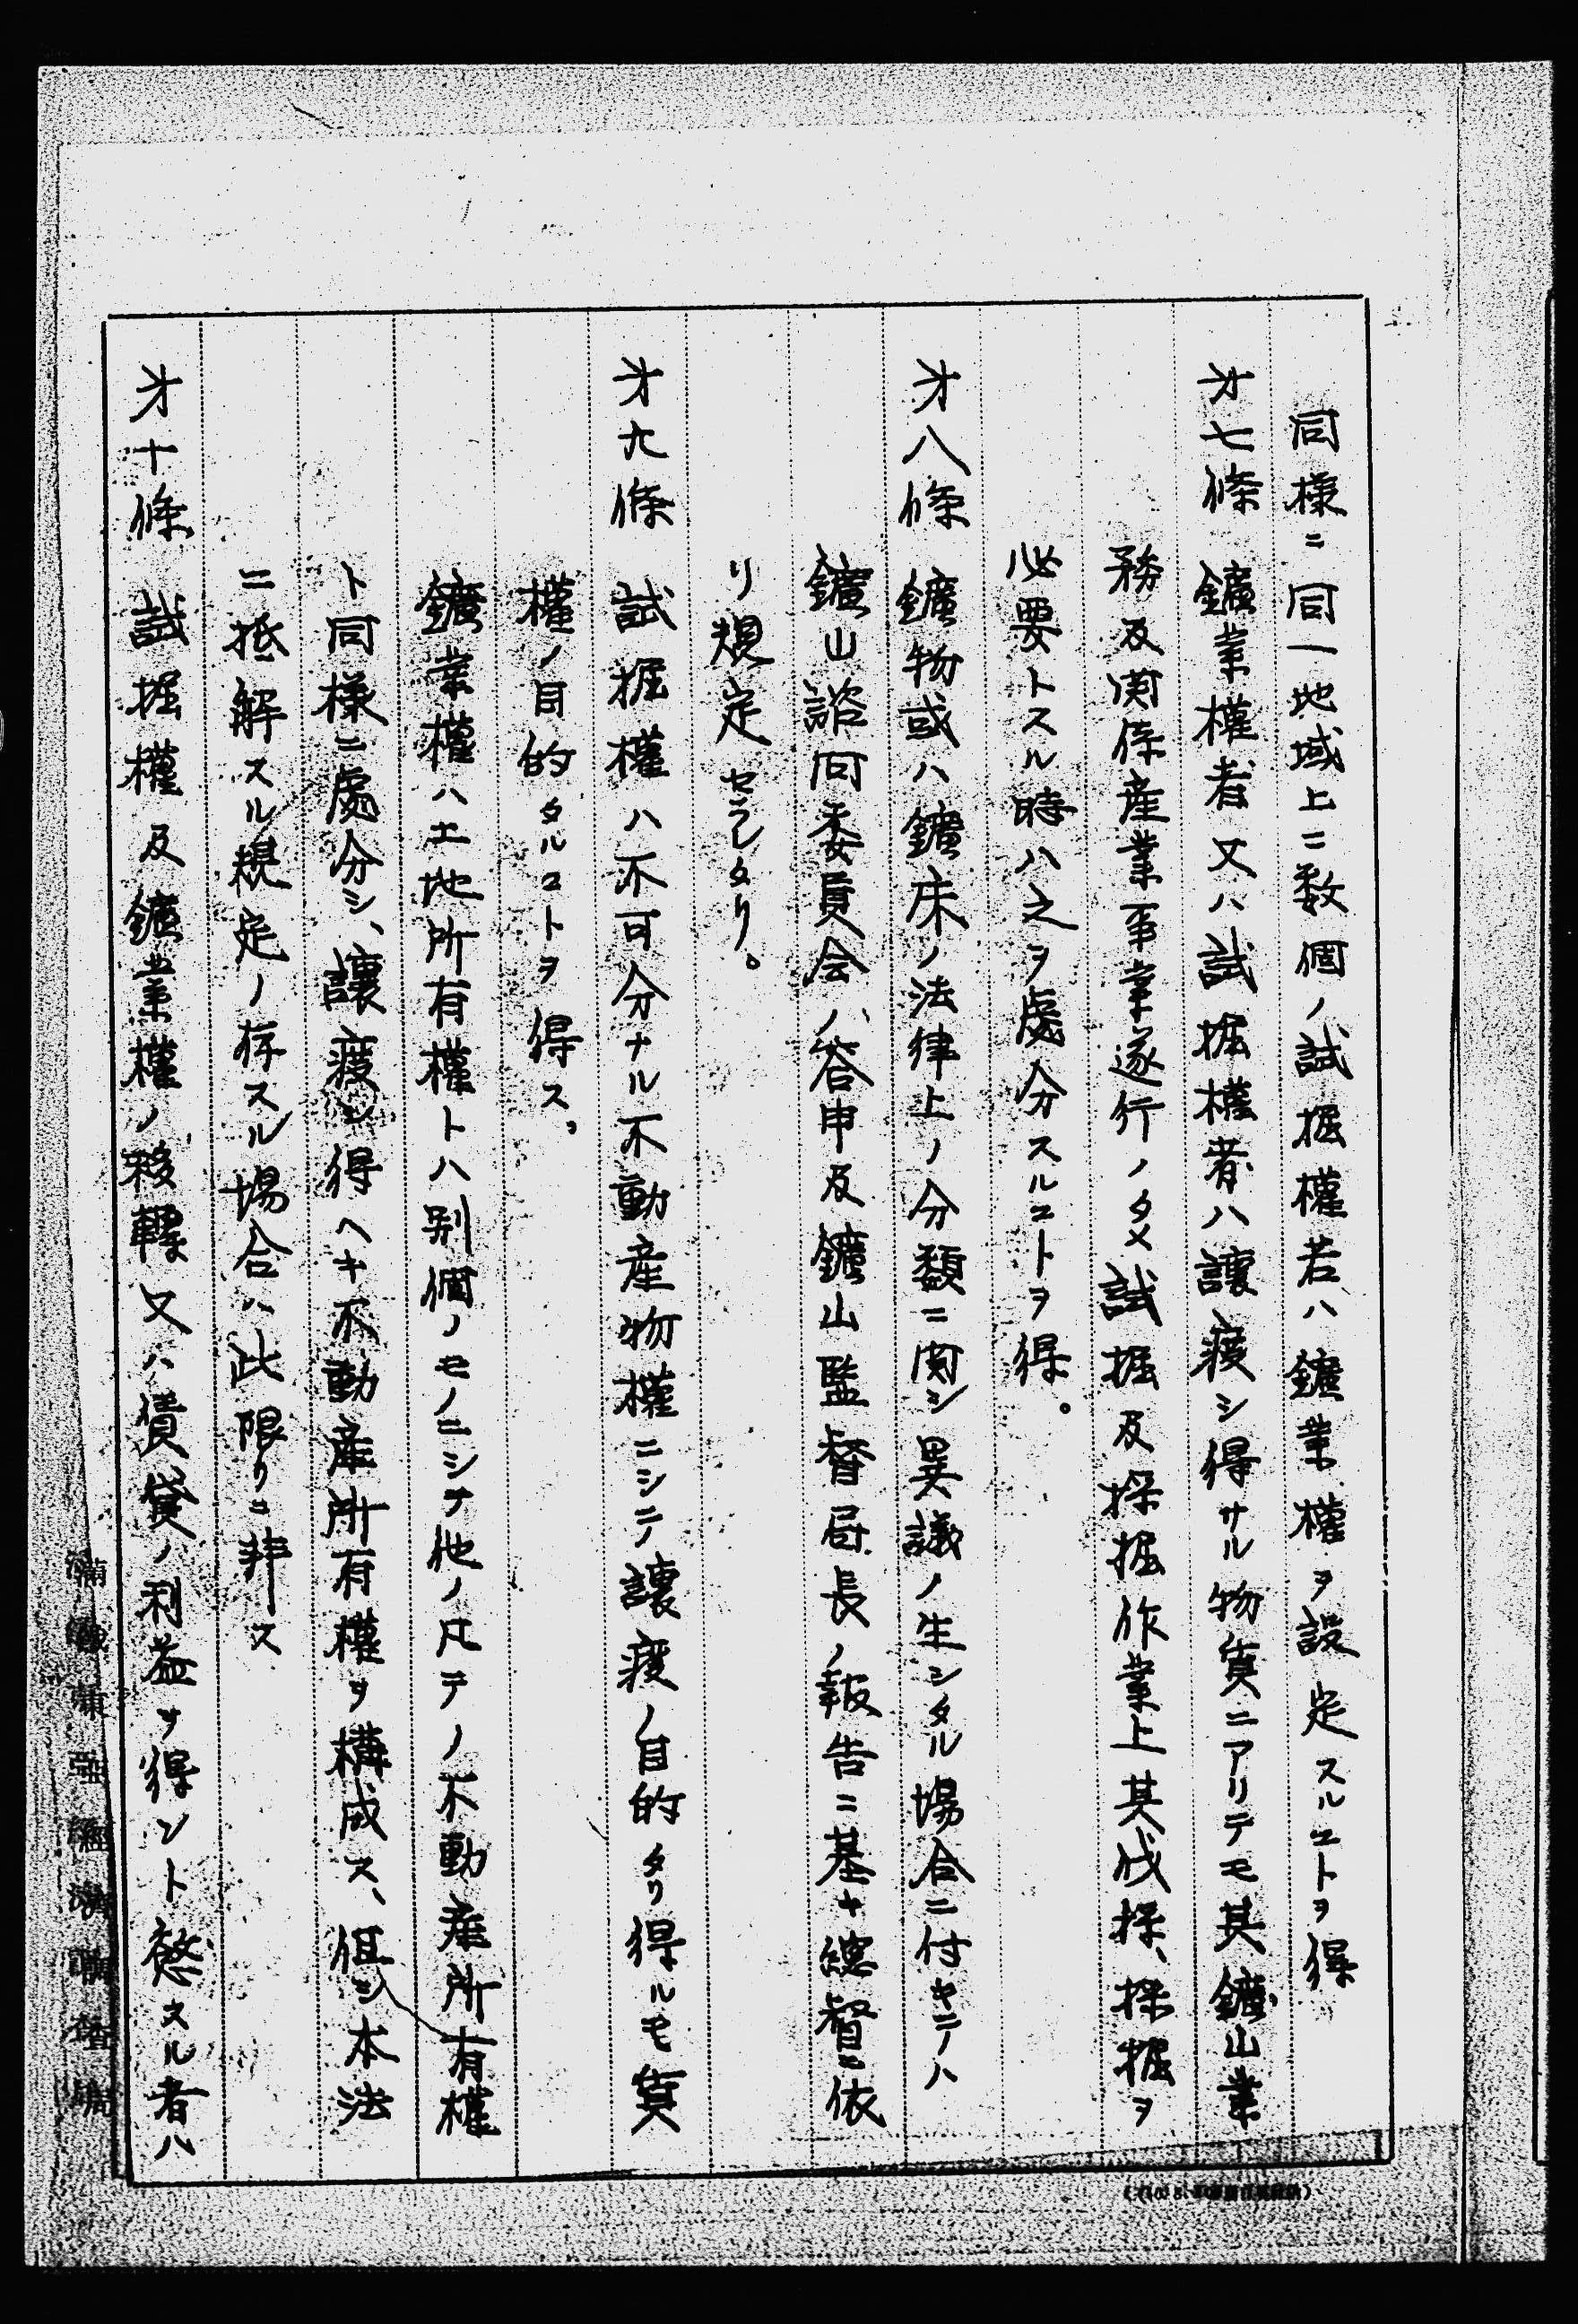 同様ニ同一地域上ニ数個ノ試掘權若ハ鑛業權ヲ設定スルコトヲ得
才七條 鑛業權者又ハ試掘權者ハ讓渡シ得サル物質ニアリテモ其鑛山業
務及関係産業事章遂行ノタメ試掘及採掘作業上其伐採、採掘ヲ
必要トスル時ハ之ヲ處分スルコトヲ得。
才八條 鑛物或ハ鑛床ノ法律上ノ分類ニ関シ異議ノ生シタル場合ニ付キテハ
鑛山諮问委員会ノ答申及鑛山監督局長ノ報告ニ基キ總督ニ依
リ規定セラレタリ。
才九條 試掘權ハ不可分ナル不動産物權ニシテ讓渡ノ目的タリ得ルモ質
權ノ目的タルコトヲ得ス、
鑛業權ハ土地所有權トハ別個ノモノニシテ他ノ凡テノ不動産所有權
ト同様ニ處分シ、讓渡シ得ヘキ不動産所有權ヲ構成ス、但シ本法
ニ抵解スル規定ノ存スル場合ハ此限リニ非ス
才十條 試掘權及鑛業權ノ移轉又ハ賃貸ノ利益ヲ得ント慾スル者ハ